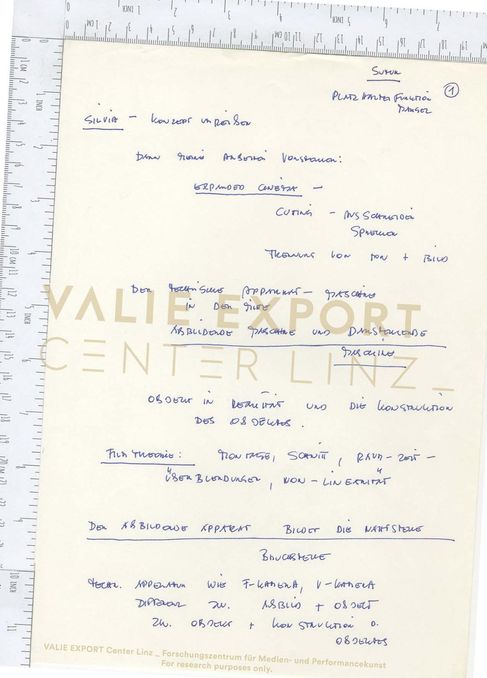 PLATZHALTER FUNKTION
①
SILVIA – KONZEPT UMREIßEN
DANN MEINE ARBEITEN VORSTELLEN:
EXPANDED CINEMA –
CUTING – AUSSCHNEIDEN
TRENNUNG VON TON + BILD
DER TECHNISCHE APPARAT – MASCHINE
IN DER MITTE
ABBILDENDE MASCHINE UND DARSTELLENDE
MASCHINE
VALIE EXPORT
CENTER LINZ_
OBJEKT IN REALITÄT UND DIE KONSTRUKTION
DES OBJEKTES.
FILMTHEORIE: MONTAGE, SCHNITT, RAUM-ZEIT-
ÜBERBLENDUNGEN, NON-LINEARITÄT
DER ABBILDENDE APPARAT BILDET DIE NAHTSTELLE
BRUCHSTELLE
TECHN. APPARATUR WIE F-KAMERA, V-KAMERA
DIFFERENZ ZW. ABBILD + OBJEKT
ZW. OBJEKT + KONSTRUKTION D.
OBJEKTES
VALIE EXPORT Center Linz _ Forschungszentrum für Medien- und Performancekunst
For research purposes only.